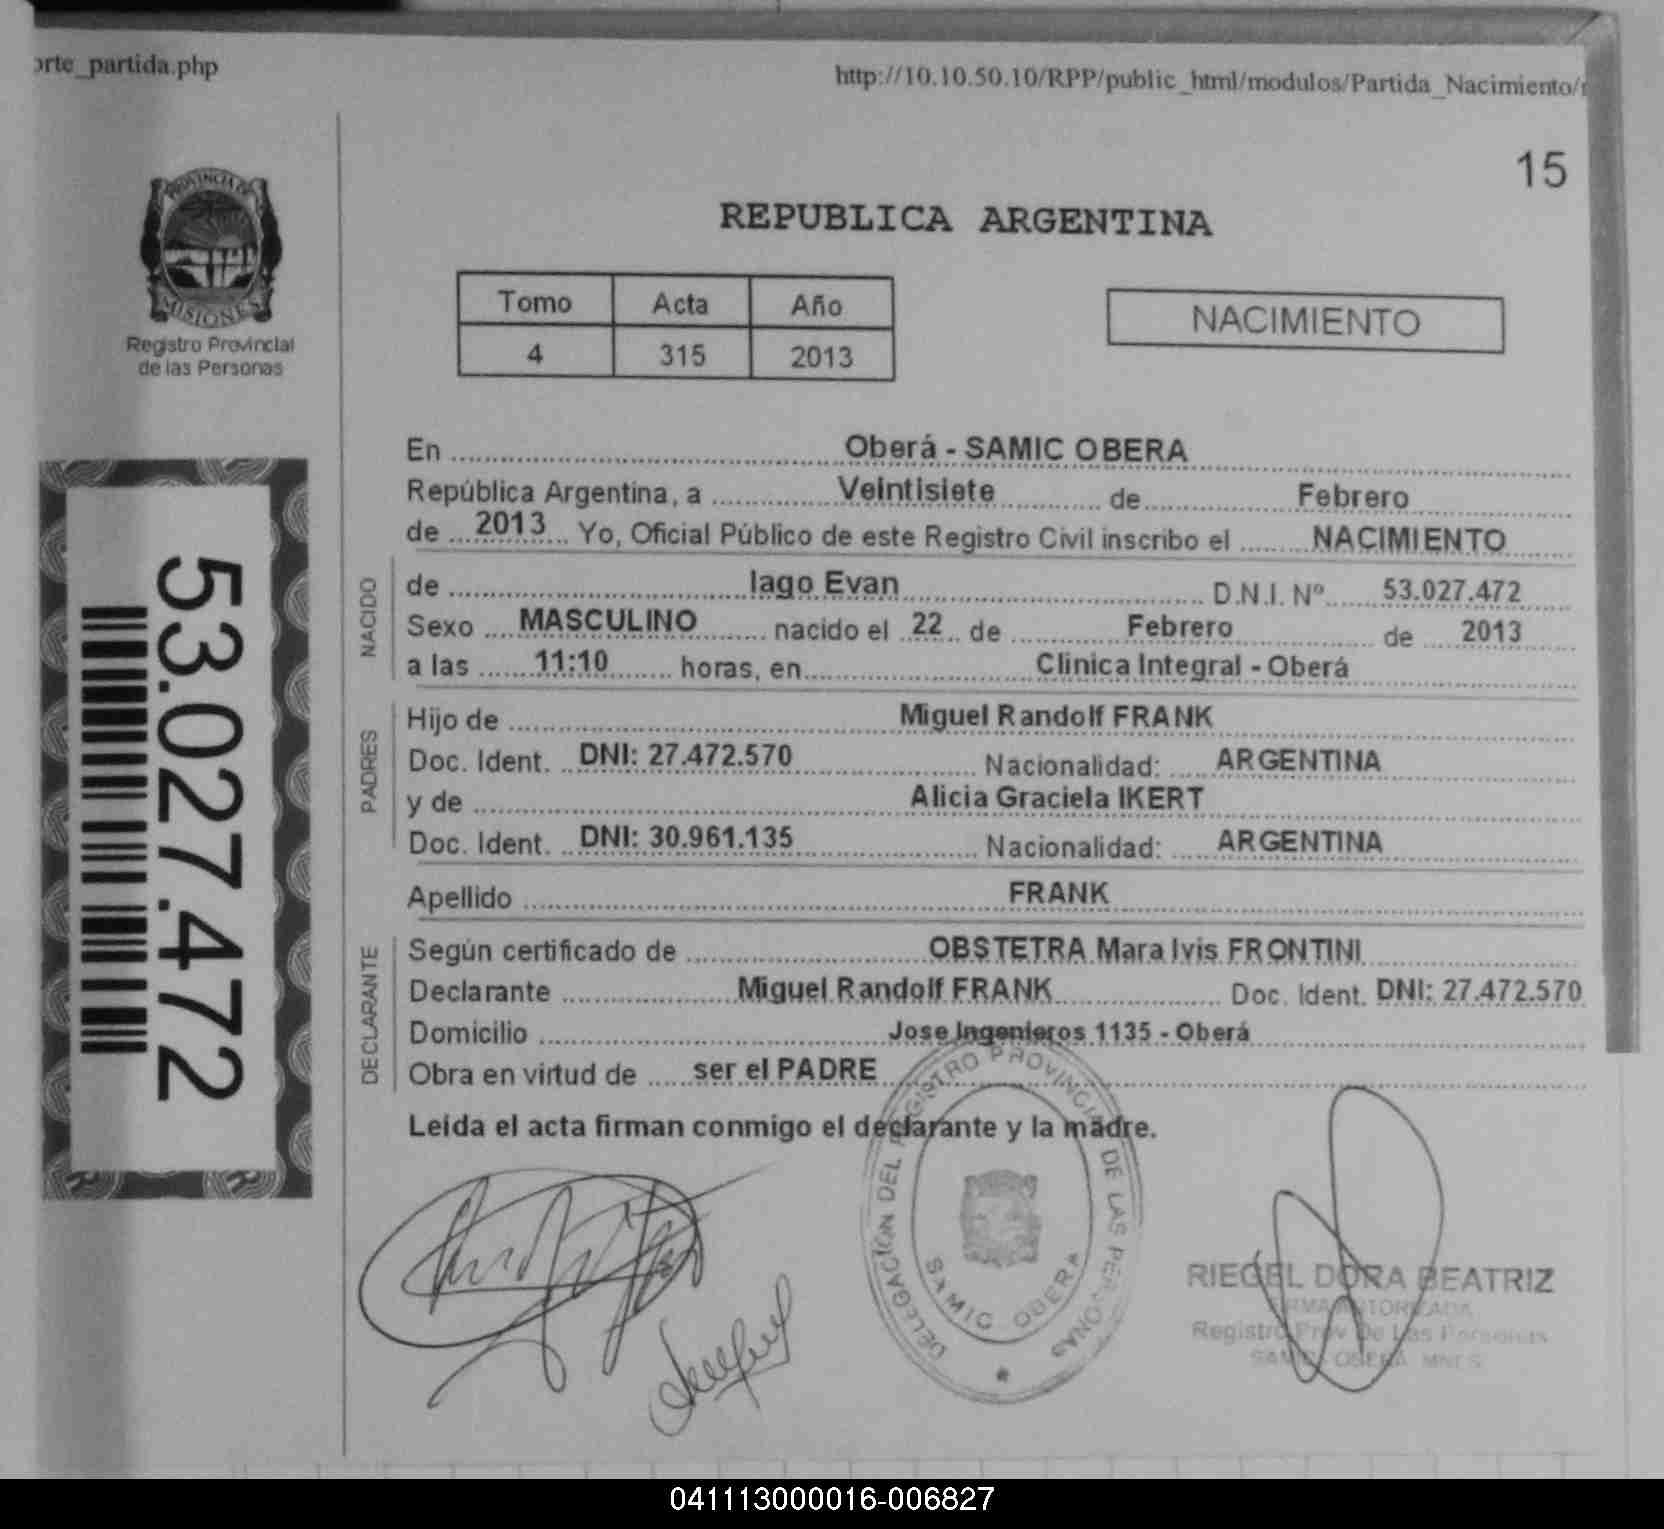 orte_partida.php
http://10.10.50.10/RPP/public_html/modulos/Partida_Nacimiento/r
15
PROVINCIA DE
MISIONES
Registro Provincial
de las Personas
REPUBLICA ARGENTINA
Tomo Acta Año
4 315 2013
NACIMIENTO
53.027.472
En Oberá - SAMIC OBERA
República Argentina, a Veintisiete de Febrero
de 2013 Yo, Oficial Público de este Registro Civil inscribo el NACIMIENTO
NACIDO
de Iago Evan D.N.I. Nº 53.027.472
Sexo MASCULINO nacido el 22 de Febrero de 2013
a las 11:10 horas, en Clinica Integral - Oberá
PADRES
Hijo de Miguel Randolf FRANK
Doc. Ident. DNI: 27.472.570 Nacionalidad: ARGENTINA
y de Alicia Graciela IKERT
Doc. Ident. DNI: 30.961.135 Nacionalidad: ARGENTINA
Apellido FRANK
DECLARANTE
Según certificado de OBSTETRA Mara Ivis FRONTINI
Declarante Miguel Randolf FRANK Doc. Ident. DNI: 27.472.570
Domicilio Jose Ingenieros 1135 - Oberá
Obra en virtud de ser el PADRE
Leída el acta firman conmigo el declarante y la madre.
DELEGACION DEL REGISTRO PROVINCIAL DE LAS PERSONAS
SAMIC OBERA
RIEGEL DORA BEATRIZ
FIRMA AUTORIZADA
Registro Prov De Las Personas
SAMIC OBERÁ MNES
041113000016-006827